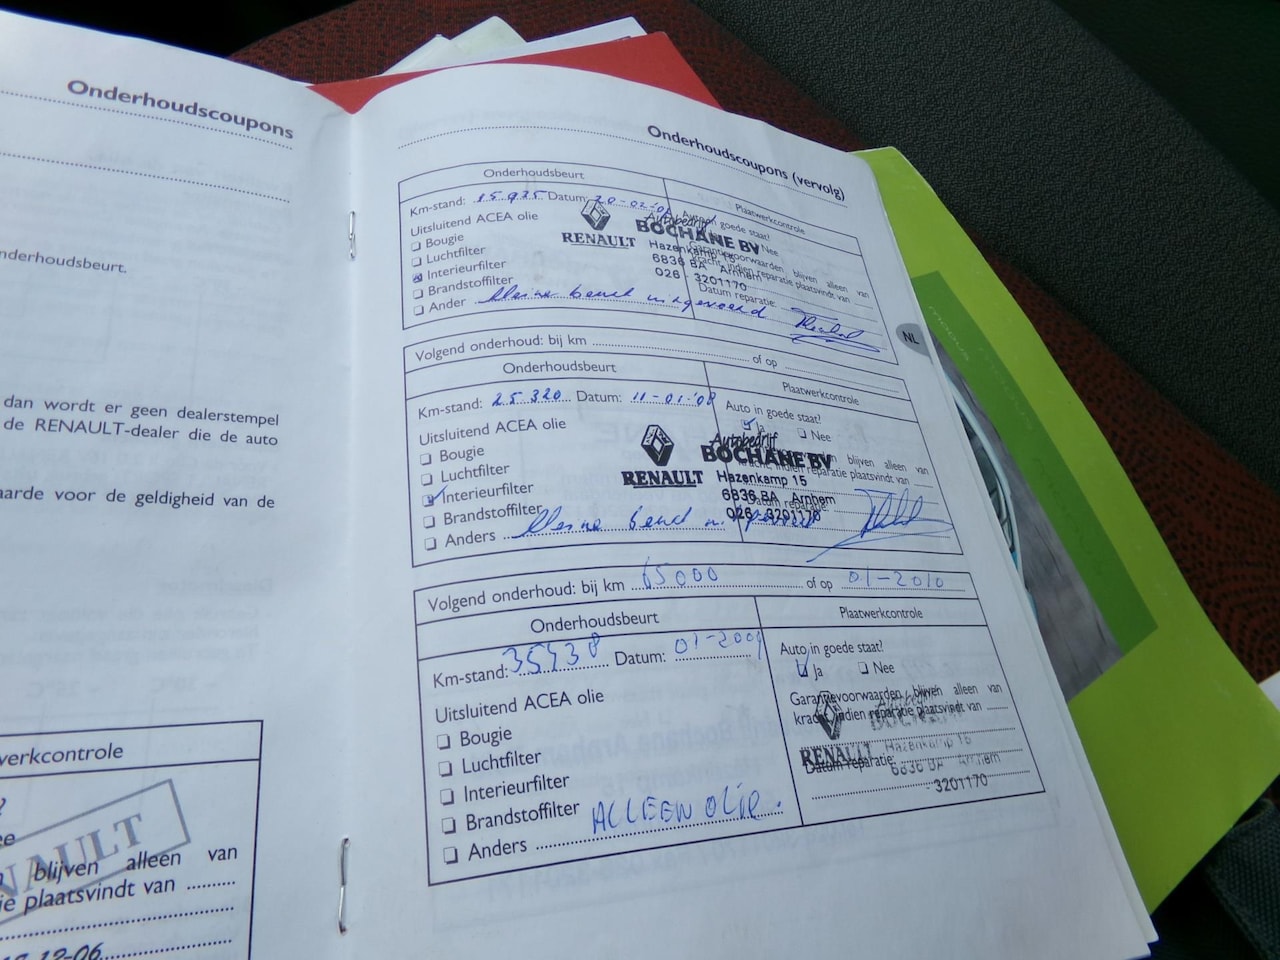 Onderhoudscoupons
nderhoudsbeurt.
dan wordt er geen dealerstempel
de RENAULT-dealer die de auto
aarde voor de geldigheid van de
werkcontrole
ee
NAULT
blijven alleen van
ie plaatsvindt van ..........
12-06
Onderhoudscoupons (vervolg)
Onderhoudsbeurt
Plaatwerkcontrole
Km-stand: 15935 Datum: 20-02-
Uitsluitend ACEA olie
Auto in goede staat?
Bougie
Nee
Luchtfilter
Garantievoorwaarden blijven alleen van
Interieurfilter
kracht, indien reparatie plaatsvindt van
Brandstoffilter
Datum reparatie:
Ander kleine beurt uitgevoerd
RENAULT
Autobedrijf
BOCHANE BV
Hazenkamp 15
6836 BA Arnhem
026 - 3201170
NL
Volgend onderhoud: bij km of op
Onderhoudsbeurt
Plaatwerkcontrole
Km-stand: 25320 Datum: 11-01-'08
Auto in goede staat?
Uitsluitend ACEA olie
Ja Nee
Bougie
blijven alleen van
Luchtfilter
kracht, indien reparatie plaatsvindt van
Interieurfilter
Brandstoffilter
Datum reparatie:
Anders kleine beurt uitgevoerd
RENAULT
Autobedrijf
BOCHANE BV
Hazenkamp 15
6836 BA Arnhem
026 - 3201170
Volgend onderhoud: bij km 65000 of op 01-2010
Onderhoudsbeurt
Plaatwerkcontrole
Km-stand: 35938 Datum: 01-2009
Auto in goede staat?
Ja Nee
Uitsluitend ACEA olie
Garantievoorwaarden blijven alleen van
Bougie
kracht, indien reparatie plaatsvindt van
Luchtfilter
Datum reparatie:
Interieurfilter
Brandstoffilter
Anders ALLEEN OLIE.
RENAULT
Hazenkamp 15
6836 BA Arnhem
- 3201170